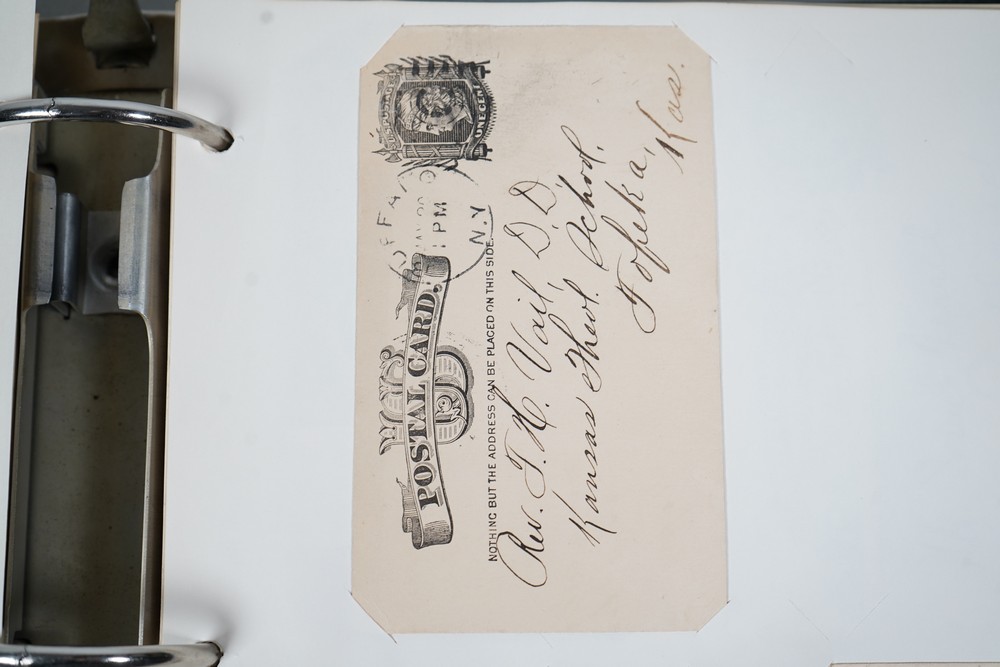 U.S. POSTAGE
ONE CENT
1 PM
N.Y.
US
POSTAL CARD.
NOTHING BUT THE ADDRESS CAN BE PLACED ON THIS SIDE.
Rev. T. H. Vail, D.D
Kansas Theol. School.
Topeka,
Kas.